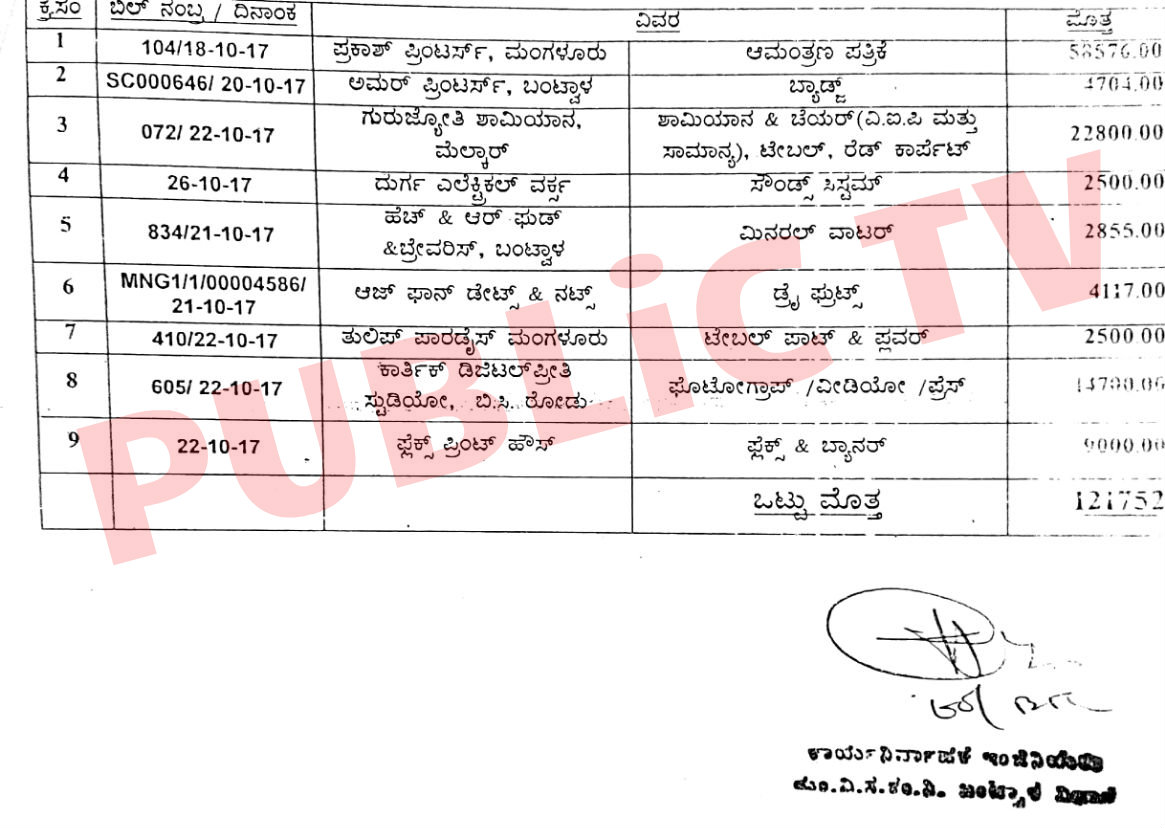 ಕ್ರ.ಸಂ ಬಿಲ್ ನಂಬ್ರ / ದಿನಾಂಕ ವಿವರ ಮೊತ್ತ
1 104/18-10-17 ಪ್ರಕಾಶ್ ಪ್ರಿಂಟರ್ಸ್, ಮಂಗಳೂರು ಆಮಂತ್ರಣ ಪತ್ರಿಕೆ 58576.00
2 SC000646/ 20-10-17 ಅಮರ್ ಪ್ರಿಂಟರ್ಸ್, ಬಂಟ್ವಾಳ ಬ್ಯಾಡ್ಜ್ 4704.00
3 072/ 22-10-17 ಗುರುಜ್ಯೋತಿ ಶಾಮಿಯಾನ, ಶಾಮಿಯಾನ & ಚೆಯರ್(ವಿ.ಐ.ಪಿ ಮತ್ತು 22800.00
ಮೆಲ್ಕಾರ್ ಸಾಮಾನ್ಯ), ಟೇಬಲ್, ರೆಡ್ ಕಾರ್ಪೆಟ್
4 26-10-17 ದುರ್ಗ ಎಲೆಕ್ಟ್ರಿಕಲ್ ವರ್ಕ್ಸ ಸೌಂಡ್ಸ್ ಸಿಸ್ಟಮ್ 2500.00
5 834/21-10-17 ಹೆಚ್ & ಆರ್ ಫುಡ್ ಮಿನರಲ್ ವಾಟರ್ 2855.00
&ಬ್ರೇವರಿಸ್, ಬಂಟ್ವಾಳ
6 MNG1/1/00004586/ ಆಜ್ ಫಾನ್ ಡೇಟ್ಸ್ & ನಟ್ಸ್ ಡ್ರೈ ಫ್ರುಟ್ಸ್ 4117.00
21-10-17
7 410/22-10-17 ತುಲಿಪ್ ಪಾರಡೈಸ್ ಮಂಗಳೂರು ಟೇಬಲ್ ಪಾಟ್ & ಪ್ಲವರ್ 2500.00
8 605/ 22-10-17 ಕಾರ್ತಿಕ್ ಡಿಜಿಟಲ್‌ಪ್ರೀತಿ ಫೊಟೋಗ್ರಾಪ್ /ವೀಡಿಯೋ /ಪ್ರೆಸ್ 14700.00
ಸ್ಟುಡಿಯೋ, ಬಿ.ಸಿ. ರೋಡು
9 22-10-17 ಫ್ಲೆಕ್ಸ್ ಪ್ರಿಂಟ್ ಹೌಸ್ ಫ್ಲೆಕ್ಸ್ & ಬ್ಯಾನರ್ 9000.00
ಒಟ್ಟು ಮೊತ್ತ 121752
PUBLiC TV
ಕಾರ್ಯನಿರ್ವಾಹಕ ಇಂಜಿನಿಯರು
ಮಂ.ವಿ.ಸ.ಕಂ.ನಿ. ಬಂಟ್ವಾಳ ವಿಭಾಗ